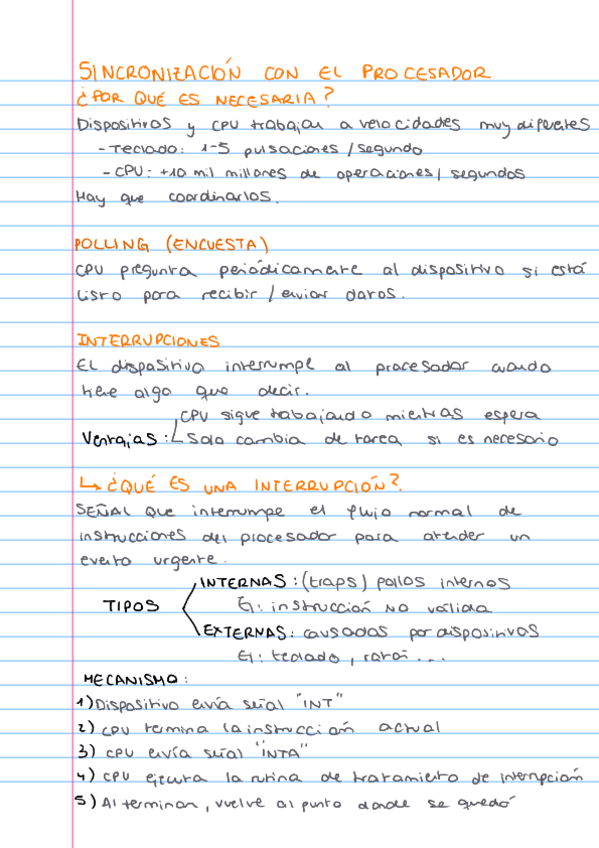 SINCRONIZACIÓN CON EL PROCESADOR
¿POR QUÉ ES NECESARIA?
Dispositivos y CPU trabajan a velocidades muy diferentes
- Teclado: 1-5 pulsaciones / segundo
- CPU: +10 mil millones de operaciones / segundos
Hay que coordinarlos.
POLLING (ENCUESTA)
CPU pregunta periódicamente al dispositivo si está
listo para recibir / enviar datos.
INTERRUPCIONES
El dispositivo interrumpe al procesador cuando
tiene algo que decir.
CPU sigue trabajando mientras espera
Ventajas: Solo cambia de tarea si es necesario
↳ ¿QUÉ ES UNA INTERRUPCIÓN?.
SEÑAL que interrumpe el flujo normal de
instrucciones del procesador para atender un
evento urgente.
INTERNAS: (traps) fallos internos
TIPOS Ej: instrucción NO válida
EXTERNAS: causadas por dispositivos
Ej: teclado, ratón ...
MECANISMO:
1) Dispositivo envía señal "INT"
2) CPU termina la instrucción actual
3) CPU envía señal "INTA"
4) CPU ejecuta la rutina de tratamiento de interrupción
5) Al terminar, vuelve al punto donde se quedó